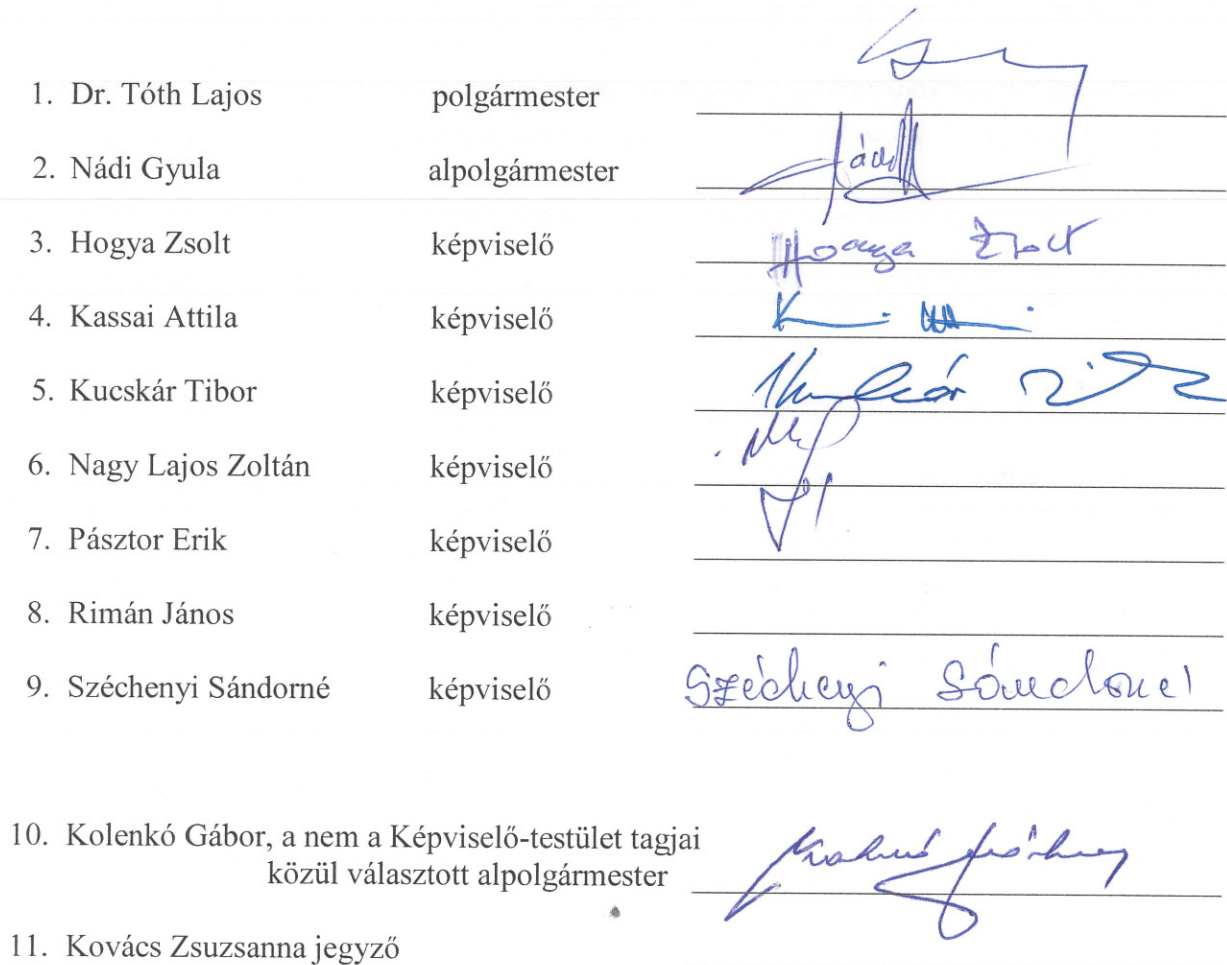 1. Dr. Tóth Lajos polgármester
2. Nádi Gyula alpolgármester
3. Hogya Zsolt képviselő Hogya Zsolt
4. Kassai Attila képviselő
5. Kucskár Tibor képviselő
6. Nagy Lajos Zoltán képviselő
7. Pásztor Erik képviselő
8. Rimán János képviselő
9. Széchenyi Sándorné képviselő Széchenyi Sándorné
10. Kolenkó Gábor, a nem a Képviselő-testület tagjai
közül választott alpolgármester
11. Kovács Zsuzsanna jegyző